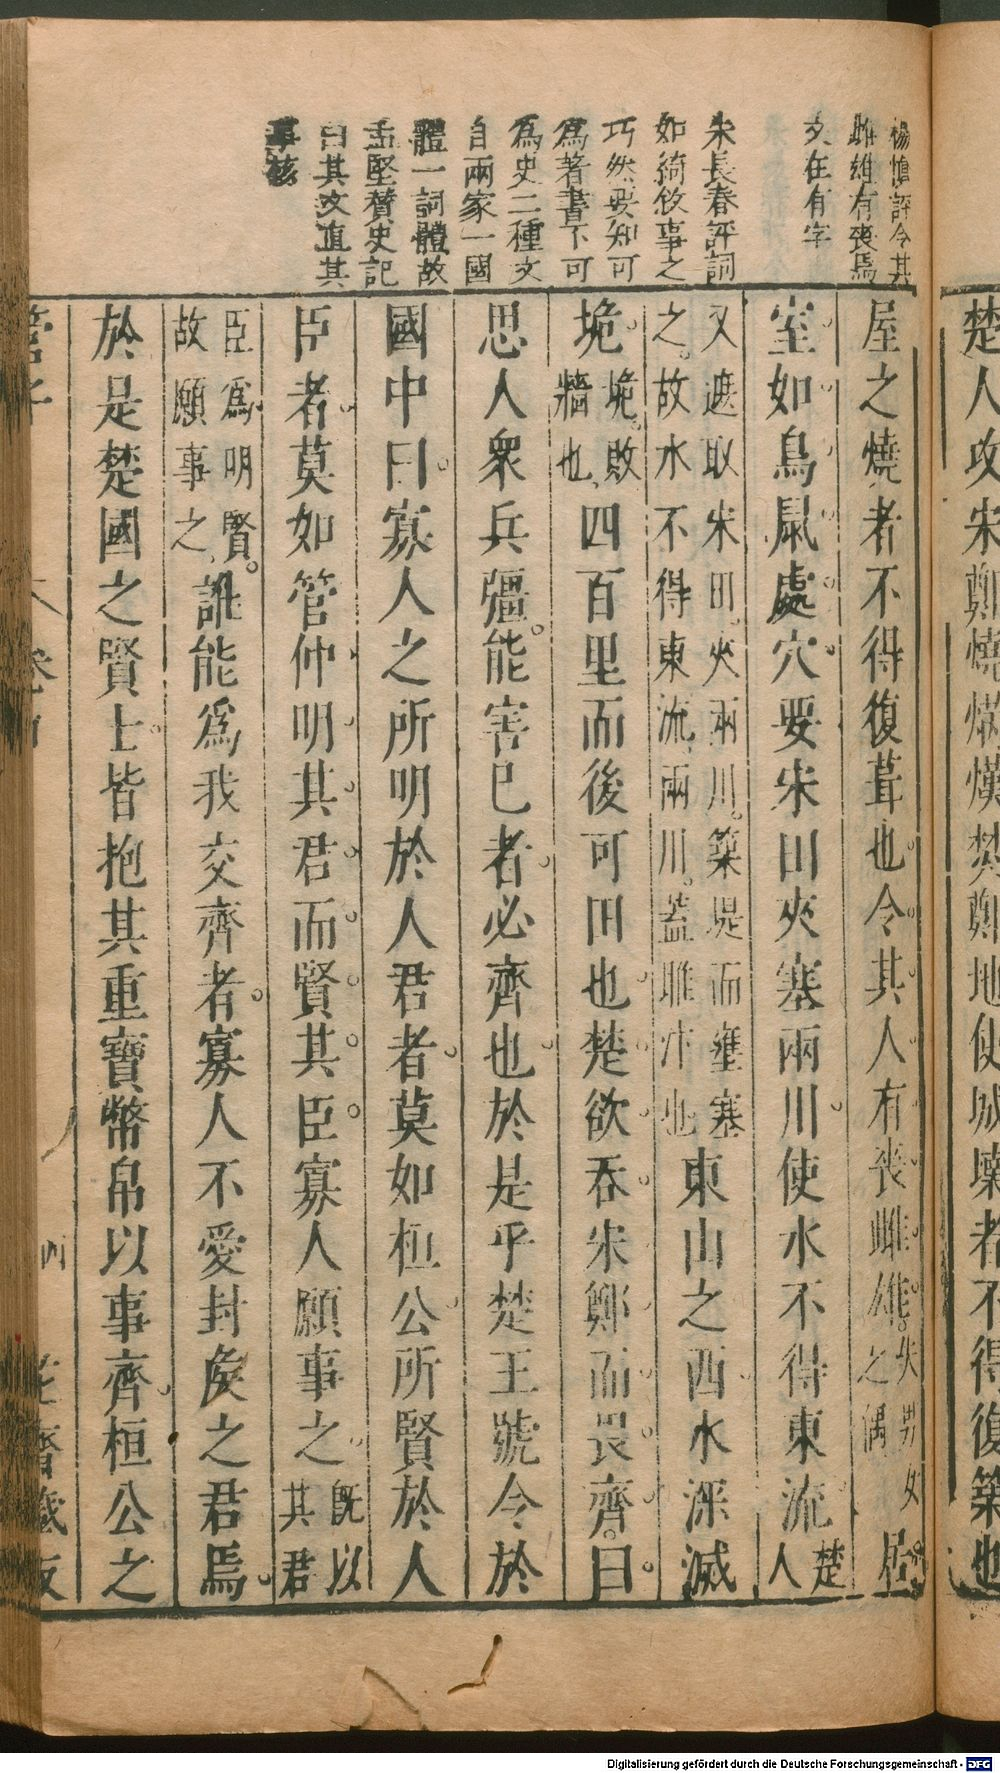 楚人攻宋鄭燒焫熯焚鄭地使城壞者不得復築也
楊愼評今其
雌雄有喪焉
文在有字
朱長春評詞
如綺敘事之
巧然要知可
爲著書不可
爲史二種文
自兩家一國
體一詞體故
孟堅贊史記
曰其文直其
事核
屋之燒者不得復葺也令其人有喪雌雄失男女之偶居
室如鳥鼠處穴要宋田夾塞兩川使水不得東流楚人
又遮取宋田夾兩川築堤而壅塞之故水不得東流兩川蓋雎汴也東山之西水深滅
垝垝敗牆也四百里而後可田也楚欲吞宋鄭而畏齊曰
思人衆兵彊能害已者必齊也於是乎楚王號令於
國中曰寡人之所明於人君者莫如桓公所賢於人
臣者莫如管仲明其君而賢其臣寡人願事之既以其君
臣爲明賢故願事之誰能爲我交齊者寡人不愛封矦之君焉
於是楚國之賢士皆抱其重寶幣帛以事齊桓公之
管子
花齋藏板
Digitalisierung gefördert durch die Deutsche Forschungsgemeinschaft - DFG